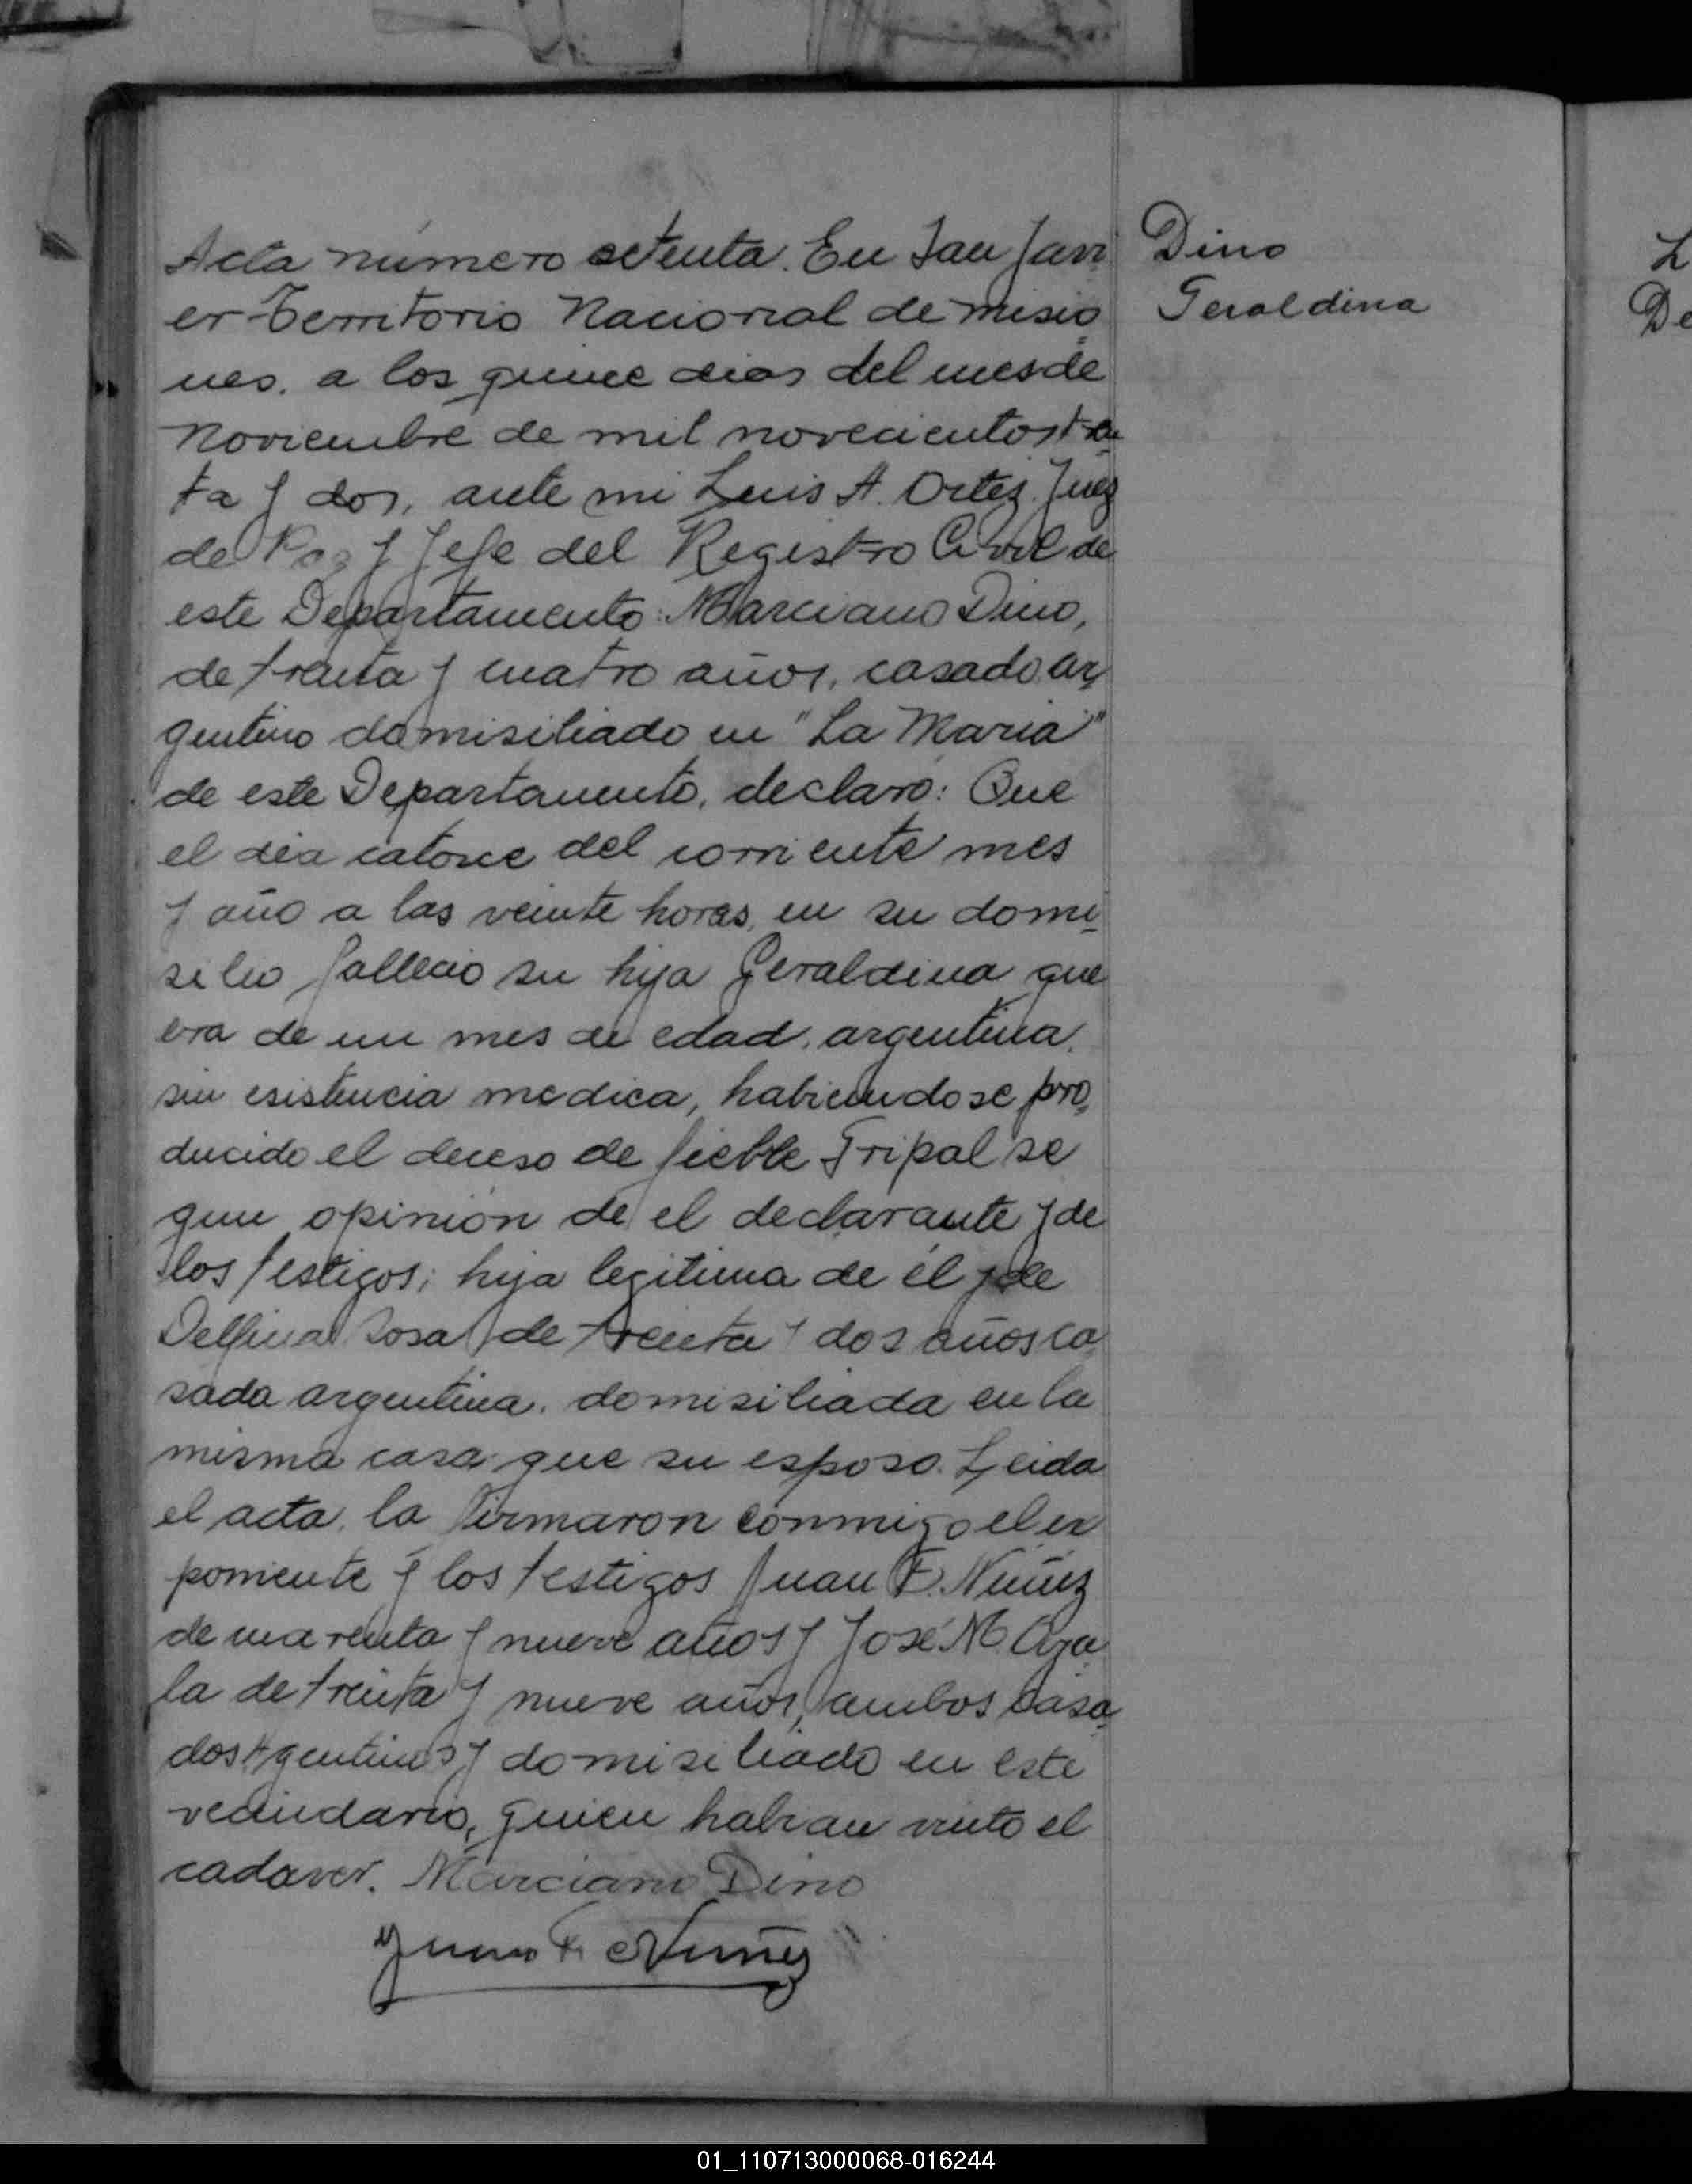 Dino
Geraldina
Acta número setenta. En San Javi
er Territorio Nacional de Misio
nes. a los quince dias del mes de
Noviembre de mil novecientos trein
ta y dos, ante mi Luis A. Ortez. Juez
de Paz y Jefe del Registro Civil de
este Departamento: Marciano Dino,
de treinta y cuatro años, casado ar
gentino domisiliado en "La Maria"
de este Departamento, declaró: Que
el dia catorce del corriente mes
y año a las veinte horas, en su domi
silio fallecio su hija Geraldina que
era de un mes de edad, argentina,
sin esistencia medica, habiendose pro
ducido el deceso de fieble Tripal se
gun opinión de el declarante y de
los testigos; hija legitima de él y de
Delfina Sosa, de treinta y dos años ca
sada argentina, domisiliada en la
misma casa que su esposo. Leida
el acta, la firmaron conmigo el ex
poniente y los testigos Juan F. Nuñez
de cuarenta y nueve años y José M. Aya
la de treinta y nueve años, ambos casa
dos Argentinos y domisiliado en este
vecindario, quien habian visto el
cadaver. Marciano Dino
Juan F. Nuñez
L
De
01_110713000068-016244